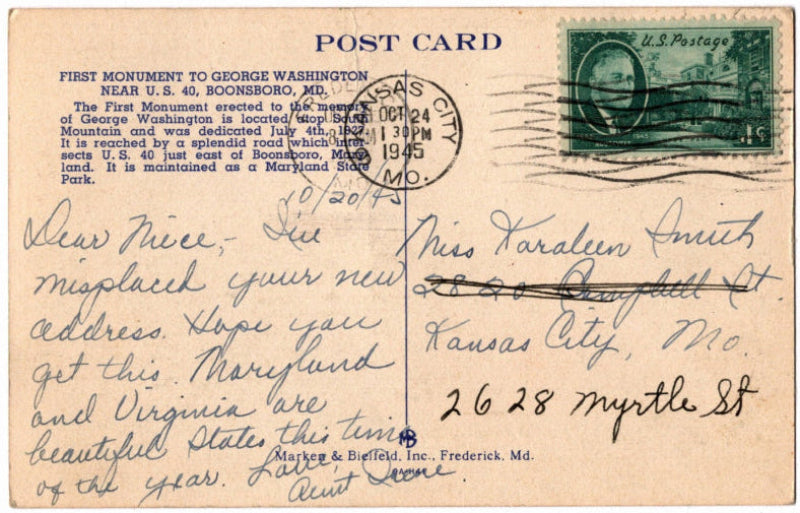 POST CARD
FIRST MONUMENT TO GEORGE WASHINGTON
NEAR U. S. 40, BOONSBORO, MD.
The First Monument erected to the memory
of George Washington is located atop South
Mountain and was dedicated July 4th, 1827.
It is reached by a splendid road which inter-
sects U. S. 40 just east of Boonsboro, Mary-
land. It is maintained as a Maryland State
Park.
KANSAS CITY
OCT 24
1 30 PM
1945
MO.
U.S. Postage
1¢
10/20/45
Dear Niece,- I've
misplaced your new
address. Hope you
get this. Maryland
and Virginia are
beautiful States this time
of the year. Love,
Aunt Irene.
Miss Karaleen Smith
2820 Campbell St.
Kansas City, Mo.
2628 Myrtle St
MB
Marken & Bielfeld, Inc., Frederick, Md.